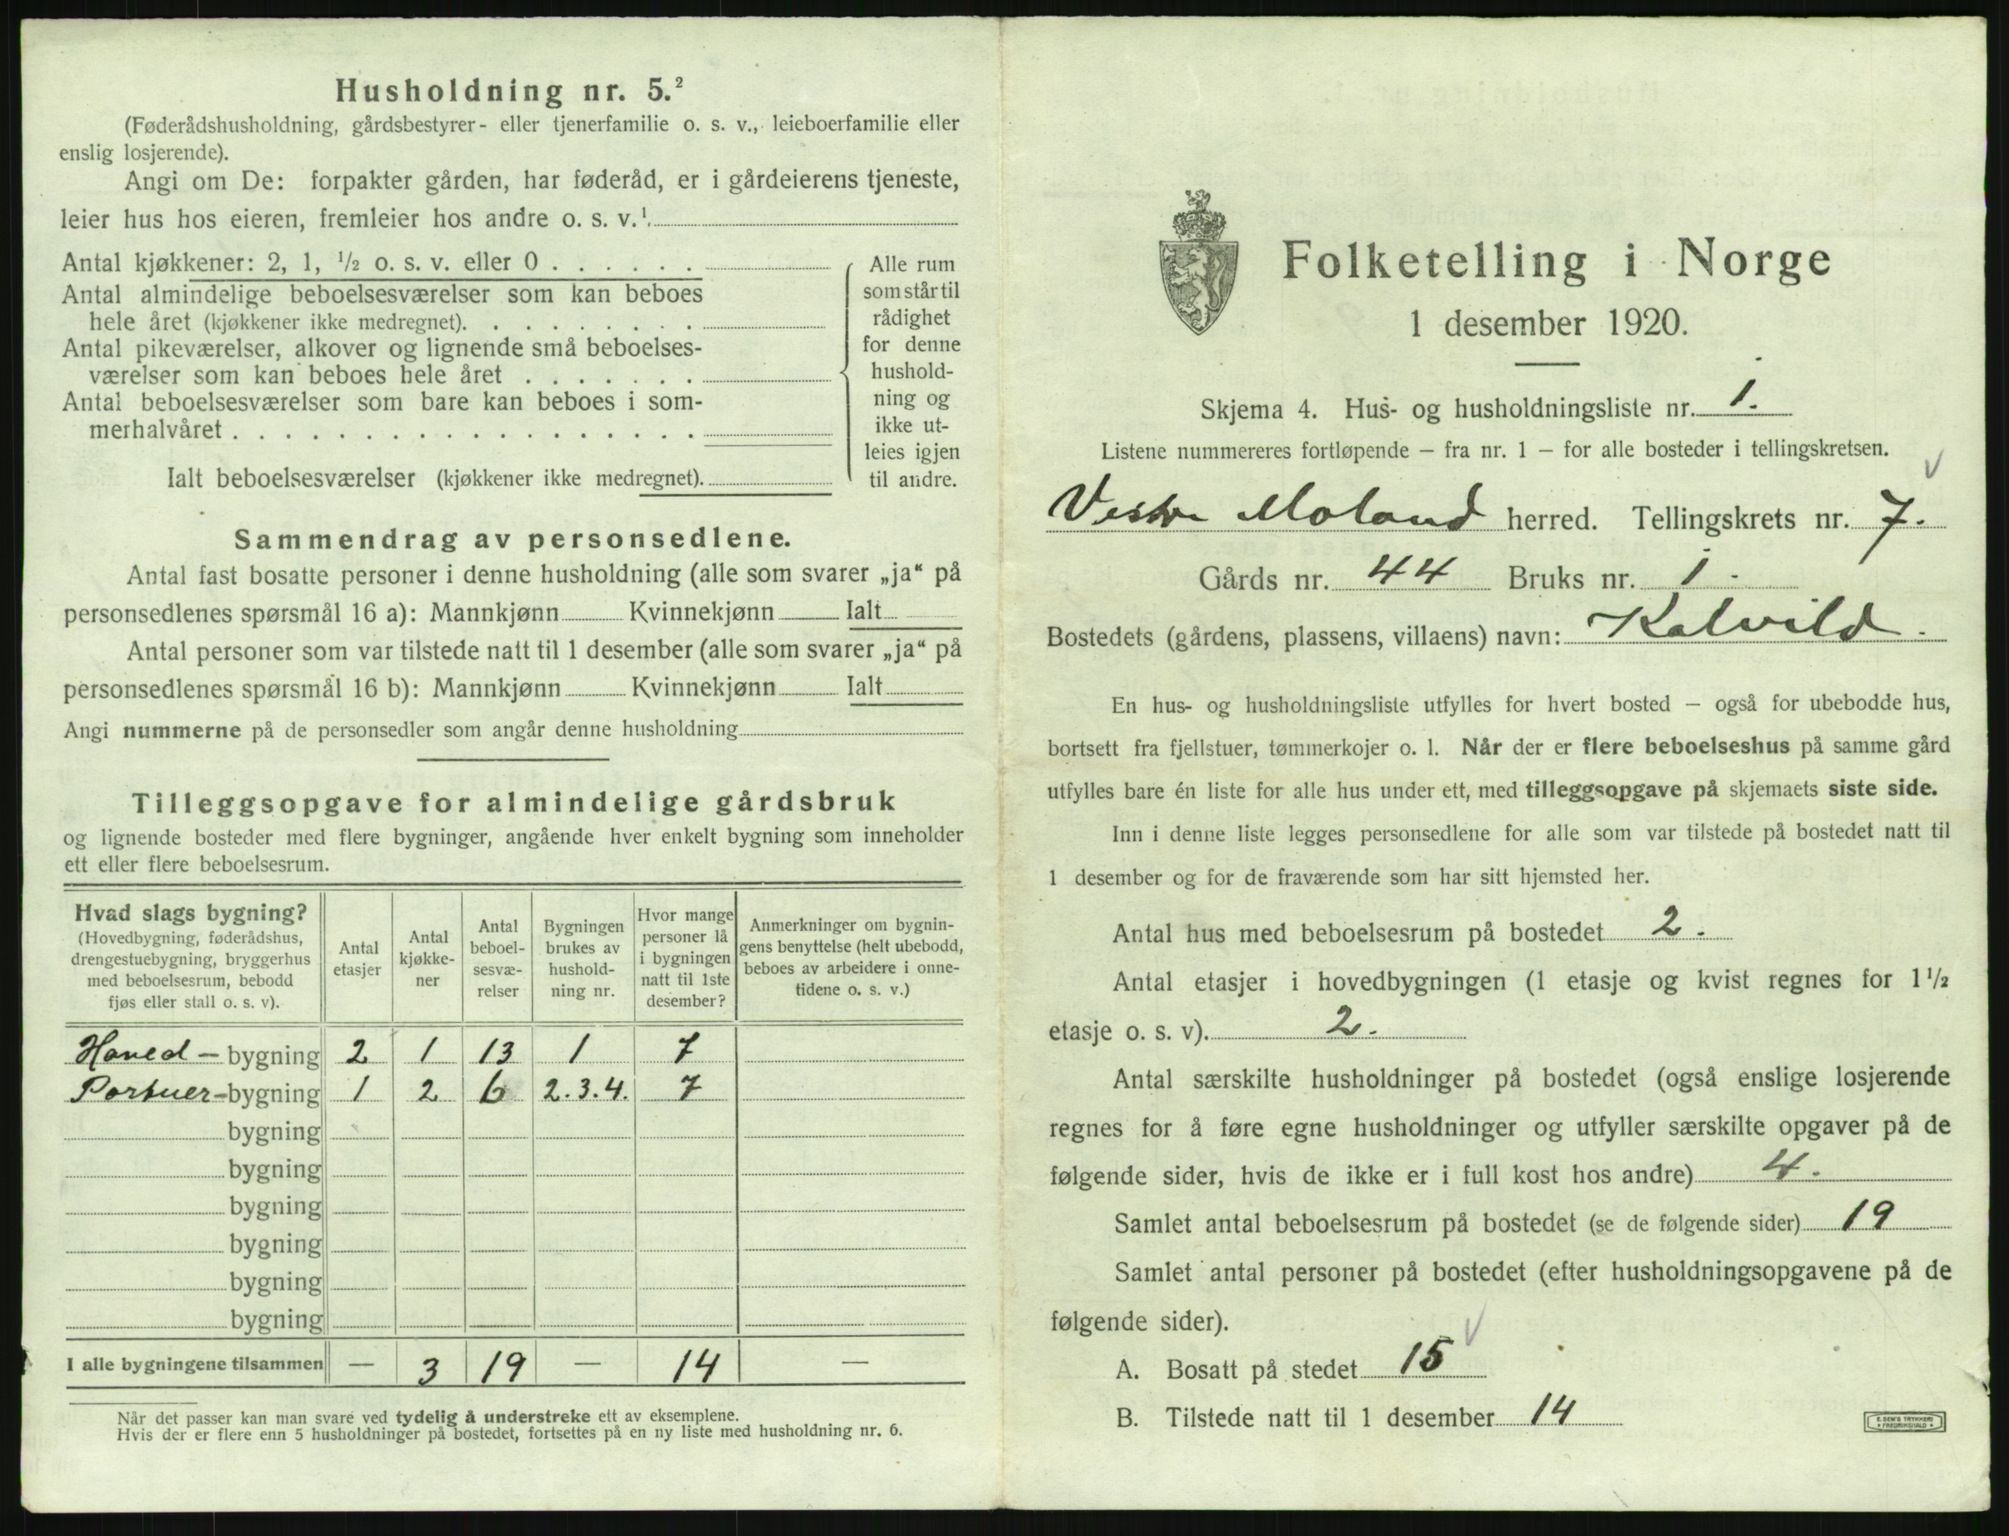 Husholdning nr. 5.²
(Føderådshusholdning, gårdsbestyrer- eller tjenerfamilie o. s. v., leieboerfamilie eller
enslig losjerende).
Angi om De: forpakter gården, har føderåd, er i gårdeierens tjeneste,
leier hus hos eieren, fremleier hos andre o. s. v.¹
Antal kjøkkener: 2, 1, ½ o. s. v. eller 0 . . . . . .
Antal almindelige beboelsesværelser som kan beboes
hele året (kjøkkener ikke medregnet). . . . . . . . .
Antal pikeværelser, alkover og lignende små beboelses-
værelser som kan beboes hele året . . . . . . .
Antal beboelsesværelser som bare kan beboes i som-
merhalvåret . . . . . . . . . . . . . . . . . .
Ialt beboelsesværelser (kjøkkener ikke medregnet).
Alle rum
som står til
rådighet
for denne
hushold-
ning og
ikke ut-
leies igjen
til andre.
Sammendrag av personsedlene.
Antal fast bosatte personer i denne husholdning (alle som svarer „ja“ på
personsedlenes spørsmål 16 a): Mannkjønn Kvinnekjønn Ialt
Antal personer som var tilstede natt til 1 desember (alle som svarer „ja“ på
personsedlenes spørsmål 16 b): Mannkjønn Kvinnekjønn Ialt
Angi nummerne på de personsedler som angår denne husholdning
Tilleggsopgave for almindelige gårdsbruk
og lignende bosteder med flere bygninger, angående hver enkelt bygning som inneholder
ett eller flere beboelsesrum.
Hvad slags bygning?
(Hovedbygning, føderådshus,
drengestuebygning, bryggerhus
med beboelsesrum, bebodd
fjøs eller stall o. s. v).
Antal
etasjer
Antal
kjøkke-
ner
Antal
beboel-
sesvæ-
relser
Bygningen
brukes av
hushold-
ning nr.
Hvor mange
personer lå
i bygningen
natt til 1ste
desember?
Anmerkninger om bygnin-
gens benyttelse (helt ubebodd,
beboes av arbeidere i onne-
tidene o. s. v.)
Hoved - bygning 2 1 13 1 7
Portner- bygning 1 2 6 2.3.4. 7
bygning
bygning
bygning
bygning
bygning
bygning
I alle bygningene tilsammen — 3 19 — 14 —
Når det passer kan man svare ved tydelig å understreke ett av eksemplene.
Hvis der er flere enn 5 husholdninger på bostedet, fortsettes på en ny liste med husholdning nr. 6.
Folketelling i Norge
1 desember 1920.
Skjema 4. Hus- og husholdningsliste nr. 1.
Listene nummereres fortløpende — fra nr. 1 — for alle bosteder i tellingskretsen.
Vestre Moland herred. Tellingskrets nr. 7.
Gårds nr. 44 Bruks nr. 1.
Bostedets (gårdens, plassens, villaens) navn: Kalvild.
En hus- og husholdningsliste utfylles for hvert bosted — også for ubebodde hus,
bortsett fra fjellstuer, tømmerkojer o. l. Når der er flere beboelseshus på samme gård
utfylles bare én liste for alle hus under ett, med tilleggsopgave på skjemaets siste side.
Inn i denne liste legges personsedlene for alle som var tilstede på bostedet natt til
1 desember og for de fraværende som har sitt hjemsted her.
Antal hus med beboelsesrum på bostedet 2.
Antal etasjer i hovedbygningen (1 etasje og kvist regnes for 1½
etasje o. s. v). 2.
Antal særskilte husholdninger på bostedet (også enslige losjerende
regnes for å føre egne husholdninger og utfyller særskilte opgaver på de
følgende sider, hvis de ikke er i full kost hos andre) 4.
Samlet antal beboelsesrum på bostedet (se de følgende sider) 19
Samlet antal personer på bostedet (efter husholdningsopgavene på de
følgende sider).
A. Bosatt på stedet 15
B. Tilstede natt til 1 desember 14
E. SEM'S TRYKKERI
FREDRIKSHALD